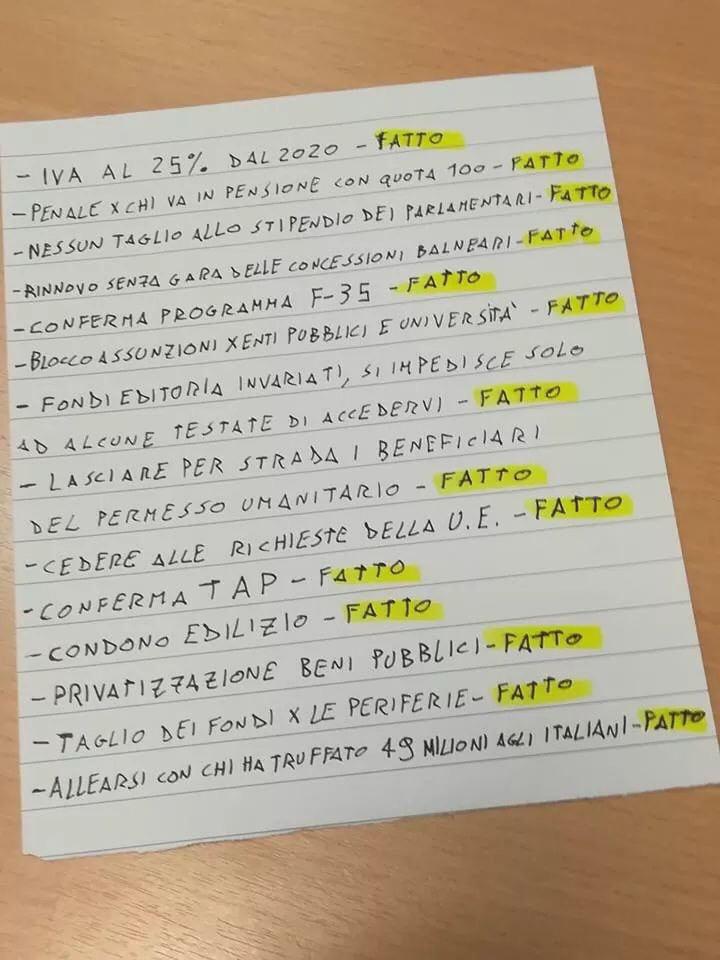 - IVA AL 25% DAL 2020 - FATTO
- PENALE X CHI VA IN PENSIONE CON QUOTA 100 - FATTO
- NESSUN TAGLIO ALLO STIPENDIO DEI PARLAMENTARI - FATTO
- RINNOVO SENZA GARA DELLE CONCESSIONI BALNEARI - FATTO
- CONFERMA PROGRAMMA F-35 - FATTO
- BLOCCO ASSUNZIONI X ENTI PUBBLICI E UNIVERSITA' - FATTO
- FONDI EDITORIA INVARIATI, SI IMPEDISCE SOLO
AD ALCUNE TESTATE DI ACCEDERVI - FATTO
- LASCIARE PER STRADA I BENEFICIARI
DEL PERMESSO UMANITARIO - FATTO
- CEDERE ALLE RICHIESTE DELLA U.E. - FATTO
- CONFERMA TAP - FATTO
- CONDONO EDILIZIO - FATTO
- PRIVATIZZAZIONE BENI PUBBLICI - FATTO
- TAGLIO DEI FONDI X LE PERIFERIE - FATTO
- ALLEARSI CON CHI HA TRUFFATO 49 MILIONI AGLI ITALIANI - FATTO